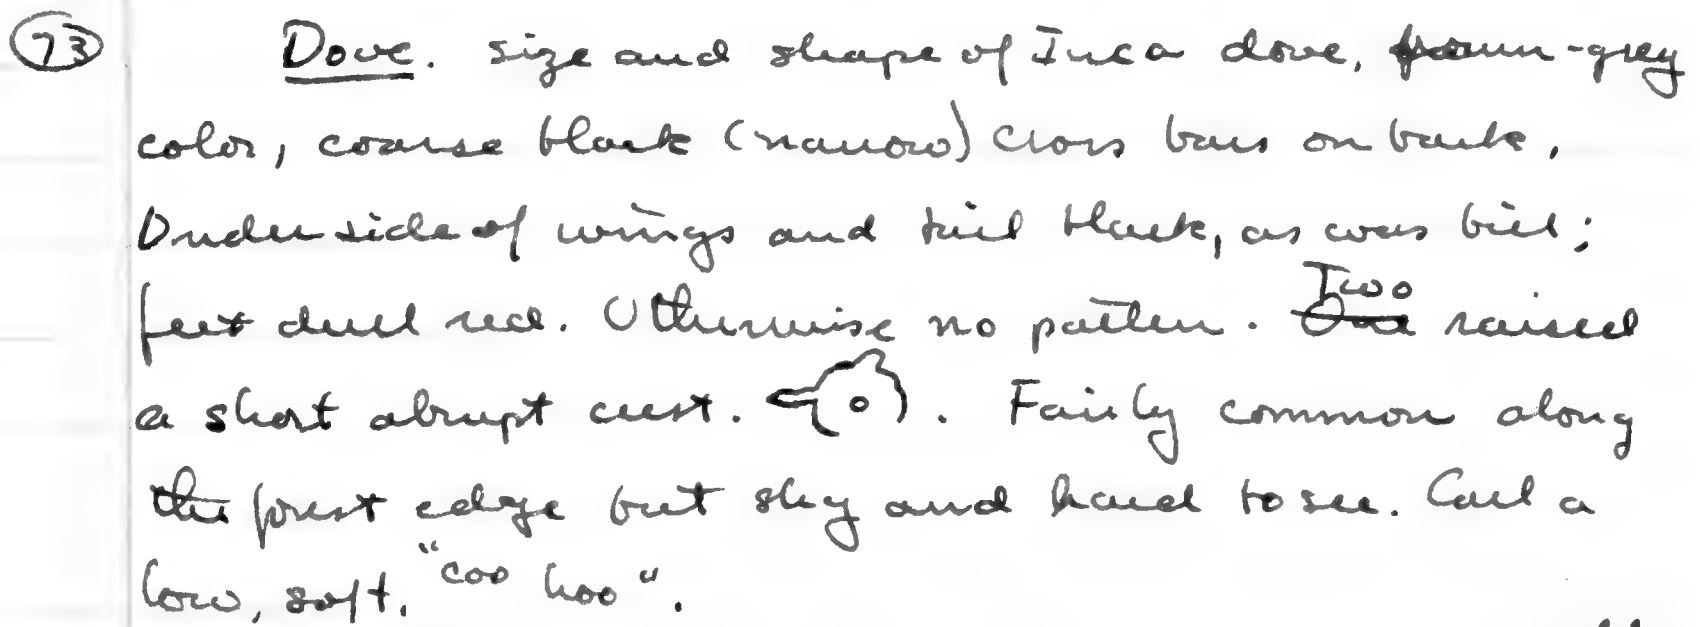 73 Dove. size and shape of Inca dove, fawn-grey
color, coarse black (narrow) cross bars on back,
Underside of wings and tail black, as was bill;
feet dull red. Otherwise no pattern. One Two raised
a short abrupt crest. . Fairly common along
the forest edge but shy and hard to see. Call a
low, soft, "coo hoo".